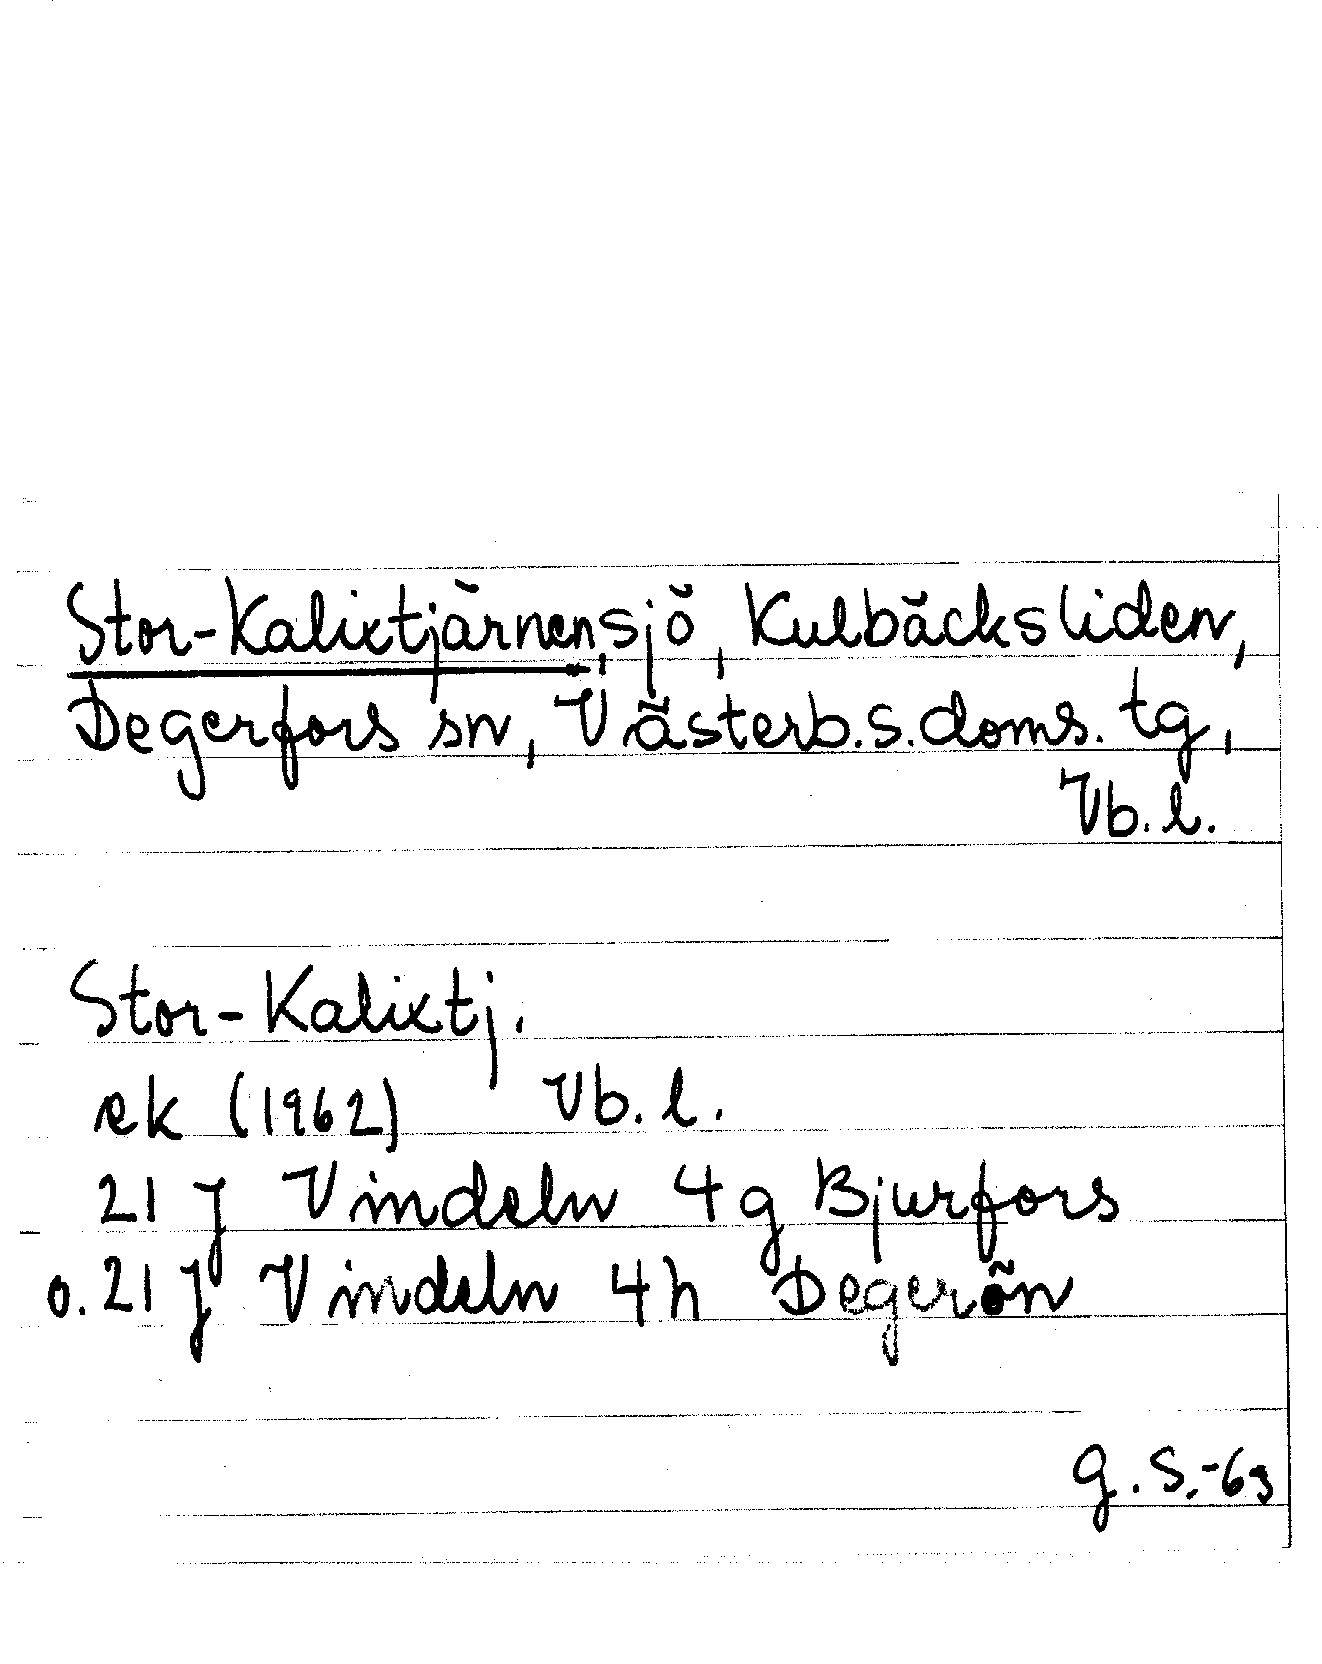 Stor-Kalixtjärnen, sjö, Kulbäcksliden,
Degerfors sn, Västerb.s.doms. tg,
Vb. l.
Stor-Kalixtj.
ek (1962) Vb. l.
21 J Vindeln 4g Bjurfors
o. 21 J Vindeln 4h Degerön
g. S.-63